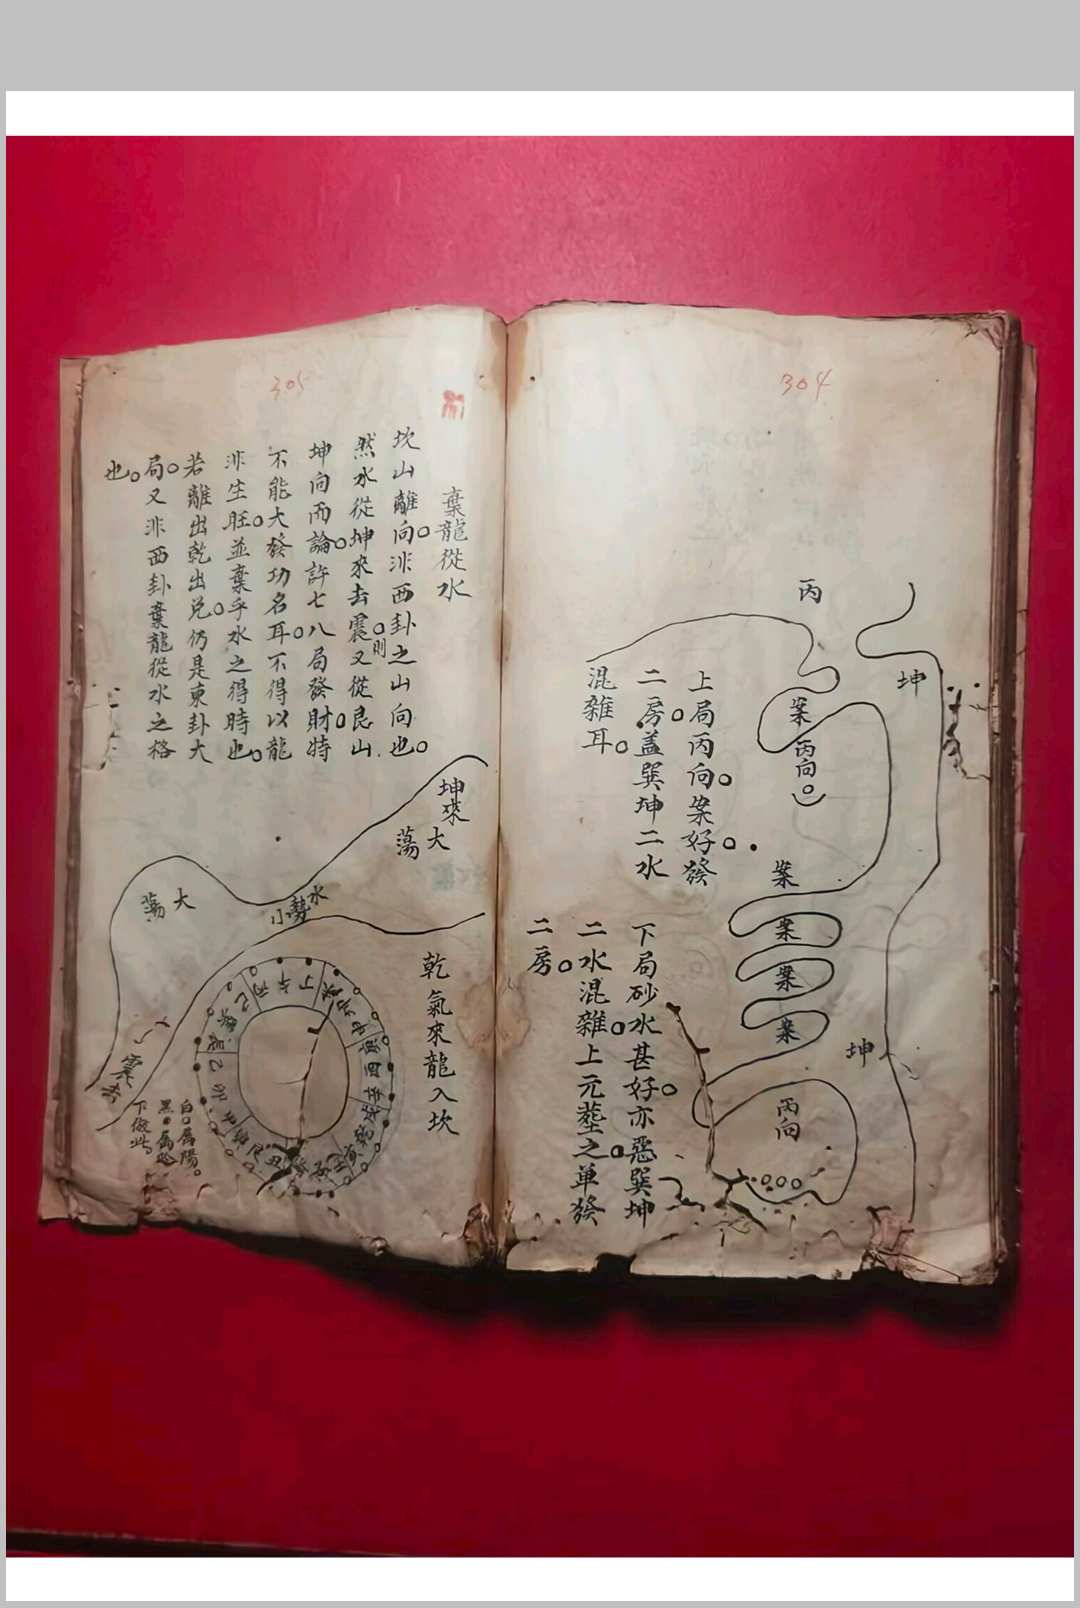 304
丙
坤
案
丙向
上局丙向案好發
二房盖巽坤二水
混雜耳
案
案
案
案
坤
丙向
下局砂水甚好亦惡巽坤
二水混雜上元塟之单發
二房
305
棄龍從水
坎山離向非西卦之山向也
然水從坤來去震則又從艮山
坤向而論許七八局發財特
不能大發功名耳不得以龍
非生旺並棄乎水之得時也
若離出乾出兑仍是東卦大
局又非西卦棄龍從水之格
也
坤來
大蕩
水勢小
大蕩
震
乾氣來龍入坎
丁午丙巳
乙卯甲
酉辛
白○屬陽
黑●屬陰
下倣此